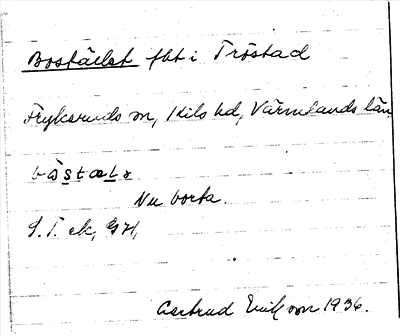 Bostället fbt i Tröstad
Frykeruds sn, Kils hd, Värmlands län
Nu borta.
Gertrud Ericson 1936.